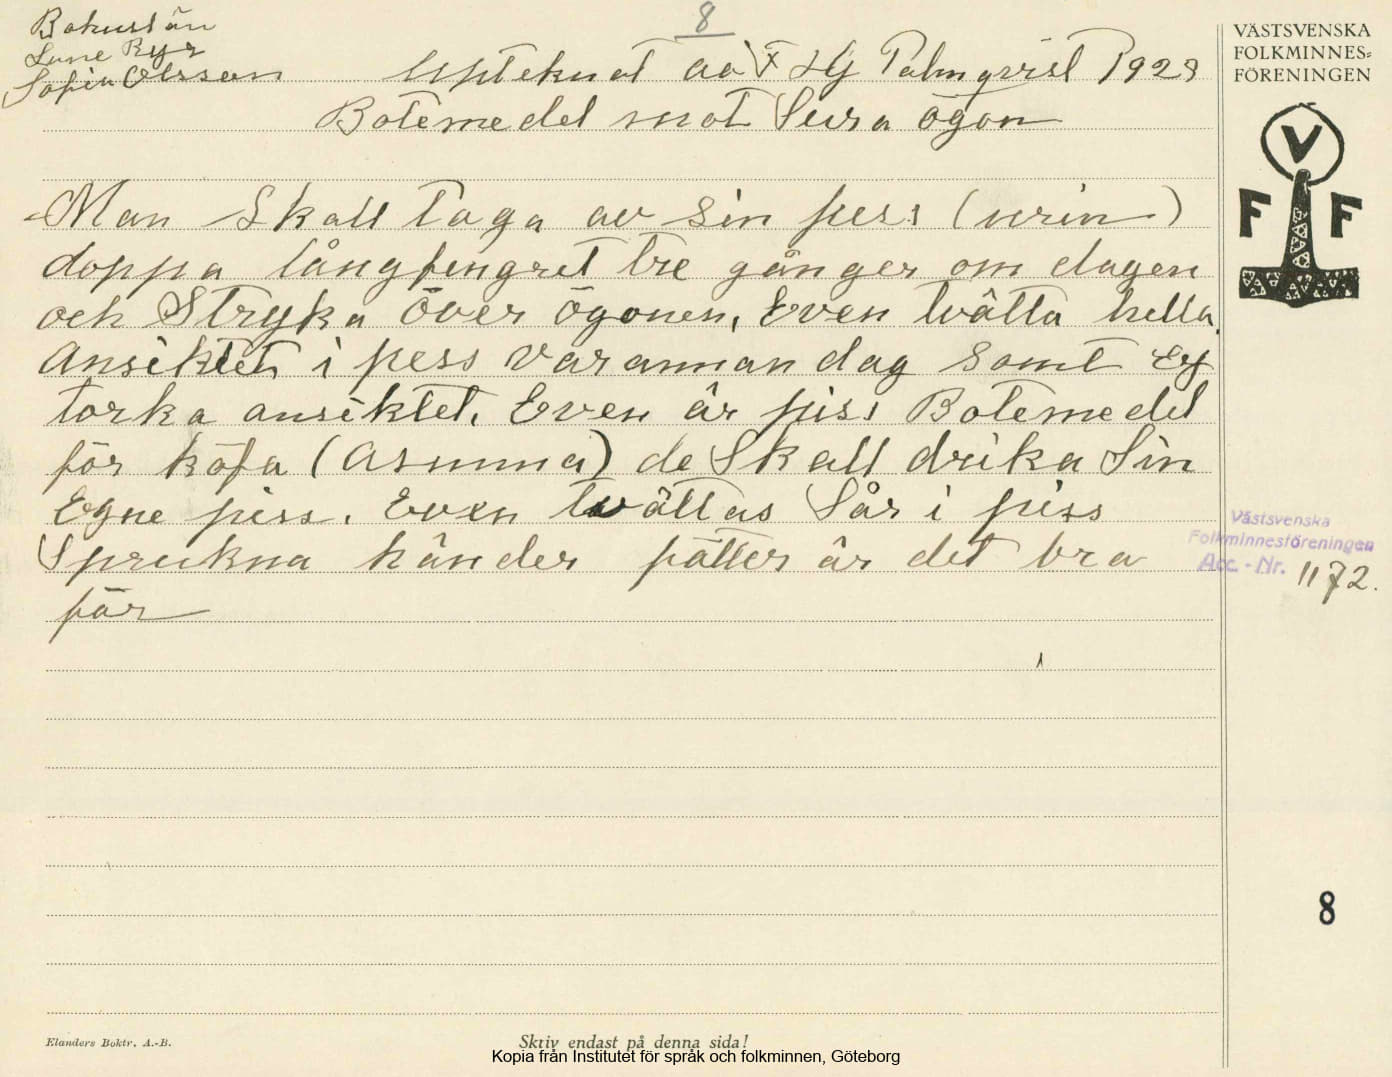 8
Bohuslän
Lane Ryr
Sofia Olsson
Upteknat av F Hj Palmqvist 1928
Botemedel mot Sura ögon
Man Skall taga av sin pess (urin)
doppa långfengret tre gånger om dagen
och Stryka över ögonen, Even tvätta hella
Ansiktet i pess varannan dag samt ej
torka ansiktet. Even är piss Botemedel
för köfa (asmma) de Skall drika Sin
Egne piss. Even tvättas Sår i piss
Sprukna händer fötter är det bra
för
VÄSTSVENSKA
FOLKMINNES=
FÖRENINGEN
V
F F
Västsvenska
Folkminnesföreningen
Acc.-Nr. 1172.
8
Elanders Boktr. A.-B.
Skriv endast på denna sida!
Kopia från Institutet för språk och folkminnen, Göteborg